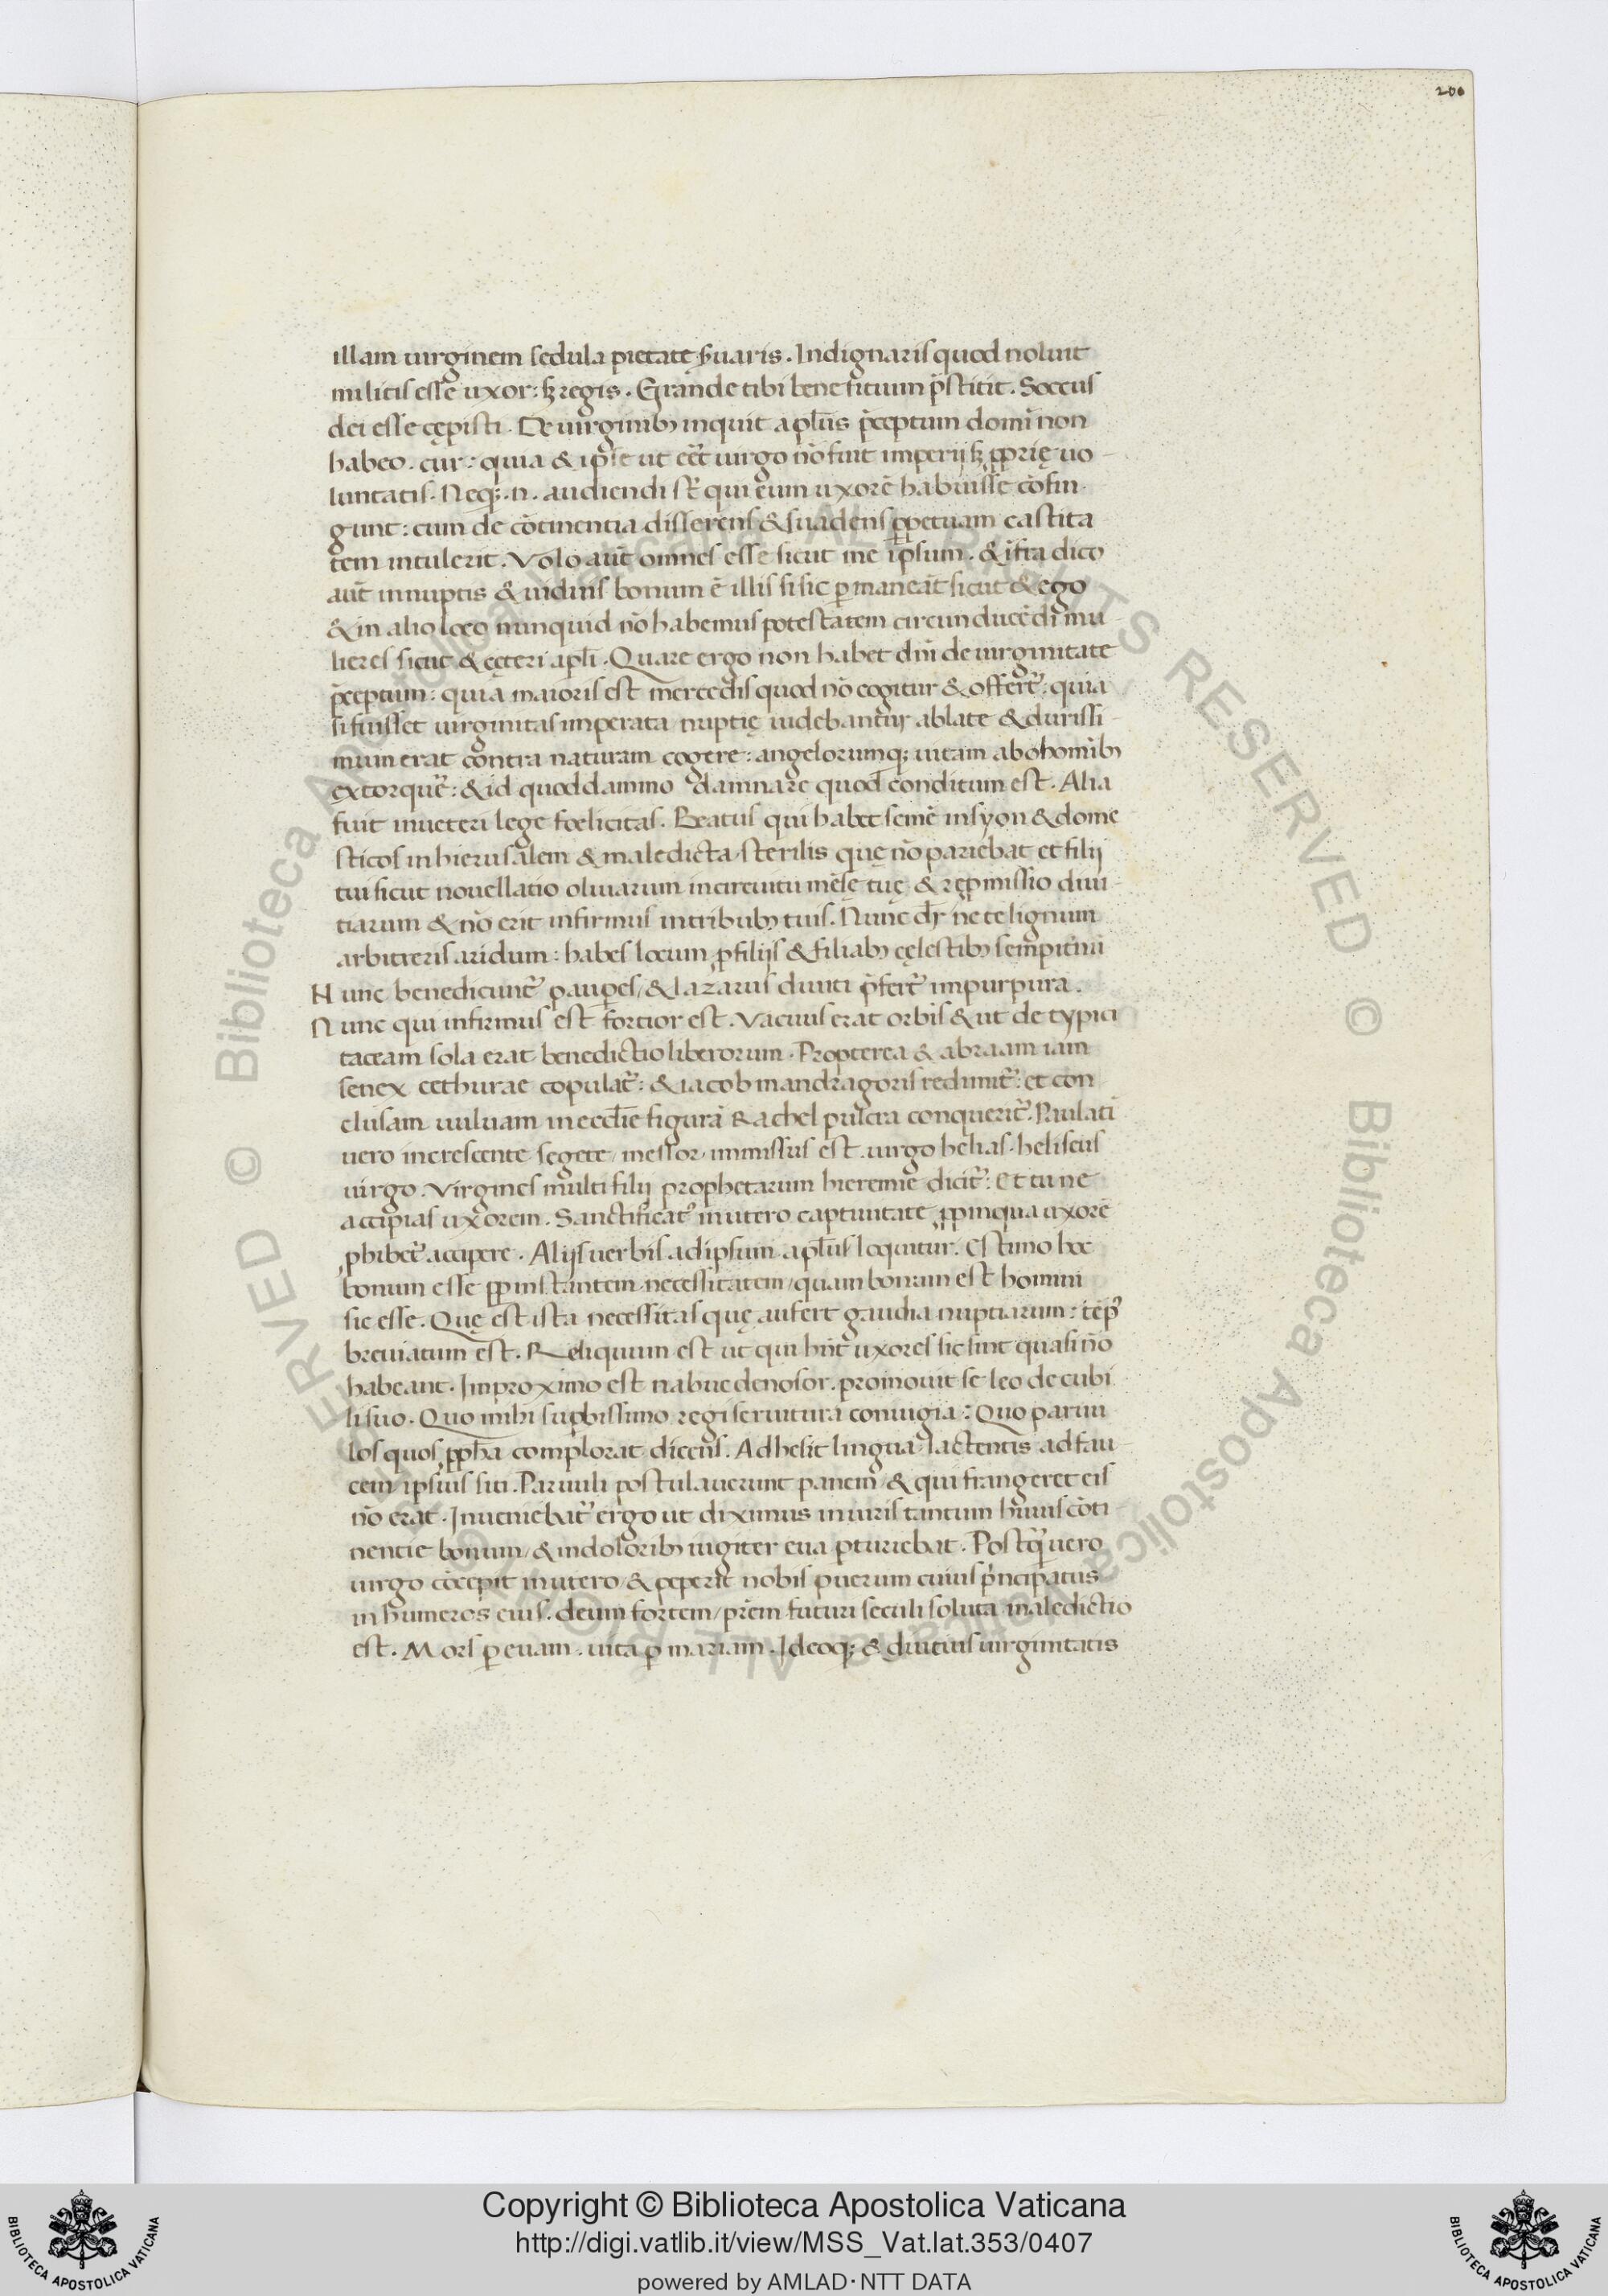 206
illam uirginem sedula pietate ẜuaris. Indignaris quod noluit
militis esse uxor: sꝫ regis. Grande tibi beneficium p̃stitit. Soccus
dei esse cępisti. De uirginibꝰ inquit apl̃us p̃ceptum domĩ non
habeo. cur: quia & ip̃se ut eẽt uirgo nõ fuit imperij sꝫ ꝓprię uo
luntatis. Neqꝫ .n. audiendi st̃ qui eum uxorẽ habuisse cõfin
gunt: cum de cõtinentia disserens & suadens ꝑpetuam castita
tem intulerit. Volo aũt omnes esse sicut me ip̃sum. & ĩfra dico
aũt innuptis & uiduis bonum ẽ illis si sic ꝑmaneãt sicut & ego
& in alio loco nunquid nõ habemus potestatem circunducẽdi mu
lieres sicut & cęteri apl̃i. Quare ergo non habet dñi de uirginitate
p̃ceptum: quia maioris est mercedis quod nõ cogitur & offert᷑: quia
si fuisset uirginitas imperata nuptię uidebantur ablate & durissi
mum erat contra naturam cogere: angelorumqꝫ uitam ab ohominibꝰ
extorquer᷑: & id quoddammo damnare quod conditum est. Alia
fuit in ueteri lege foelicitas. Beatus qui habet semẽ in syon & dome
sticos in hierusalem & maledicta sterilis quę nõ pariebat et filij
tui sicut nouellatio oliuarum in circuitu mẽsę tuę & reꝓmissio diui
tiarum & nõ erit infirmus in tribubꝰ tuis. Nunc dr̃ ne te lignum
arbitreris aridum: habes locum ꝓ filijs & filiabꝰ cęlestibꝰ sempit̃nũ
Nunc benedicunt᷑ pauꝑes/ & lazarus diuiti p̃fert᷑ in purpura.
Nunc qui infirmus est fortior est. Vacuus erat orbis & ut de typici
taceam sola erat benedictio liberorum. Propterea & abraam iam
senex cethurae copulat᷑: & iacob mandragoris redimit᷑: et con
clusam uuluam in eccl̃ie figurã Rachel pulcra conquerit᷑. Paulatĩ
uero increscente segete/ messor immissus est. uirgo helias. heliseus
uirgo. Virgines multi filij prophetarum hieremie dicit᷑: Et tu ne
accipias uxorem. Sanctificatꝰ in utero captiuitate ꝓpinqua uxorẽ
ꝓhibet᷑ accipere. Alijs uerbis ad ipsum apl̃us loquitur. Estimo hoc
bonum esse ꝓp instantem necessitatem/ quam bonum est homini
sic esse. Quę est ista necessitas quę aufert gaudia nuptiarum: tẽpꝰ
breuiatum est. Reliquum est ut qui hñt uxores sic sint quasi nõ
habeant. In proximo est nabucdenosor. promouit se leo de cubi
li suo. Quo mihi suꝑbissimo regi seruitura coniugia: Quo paruu
los quos ꝓph̃a complorat dicens. Adhesit lingua lactentis ad fau
cem/ ipsius siti. Paruuli postulauerunt panem/ & qui frangeret eis
nõ erat. Inueniebat᷑ ergo ut diximus in uiris tantum huius cõti
nentie bonum/ & in doloribꝰ iugiter eua ꝑturiebat. Postq̃ uero
uirgo cõcepit in utero & peperit nobis puerum cuius p̃ncipatus
in humeros eius. deum fortem/ pr̃em futuri seculi soluta maledictio
est. Mors ꝑ euam. uita ꝑ mariam. Ideoqꝫ & diuitius uirginitatis
Copyright © Biblioteca Apostolica Vaticana
http://digi.vatlib.it/view/MSS_Vat.lat.353/0407
powered by AMLAD·NTT DATA
BIBLIOTECA APOSTOLICA VATICANA
BIBLIOTECA APOSTOLICA VATICANA